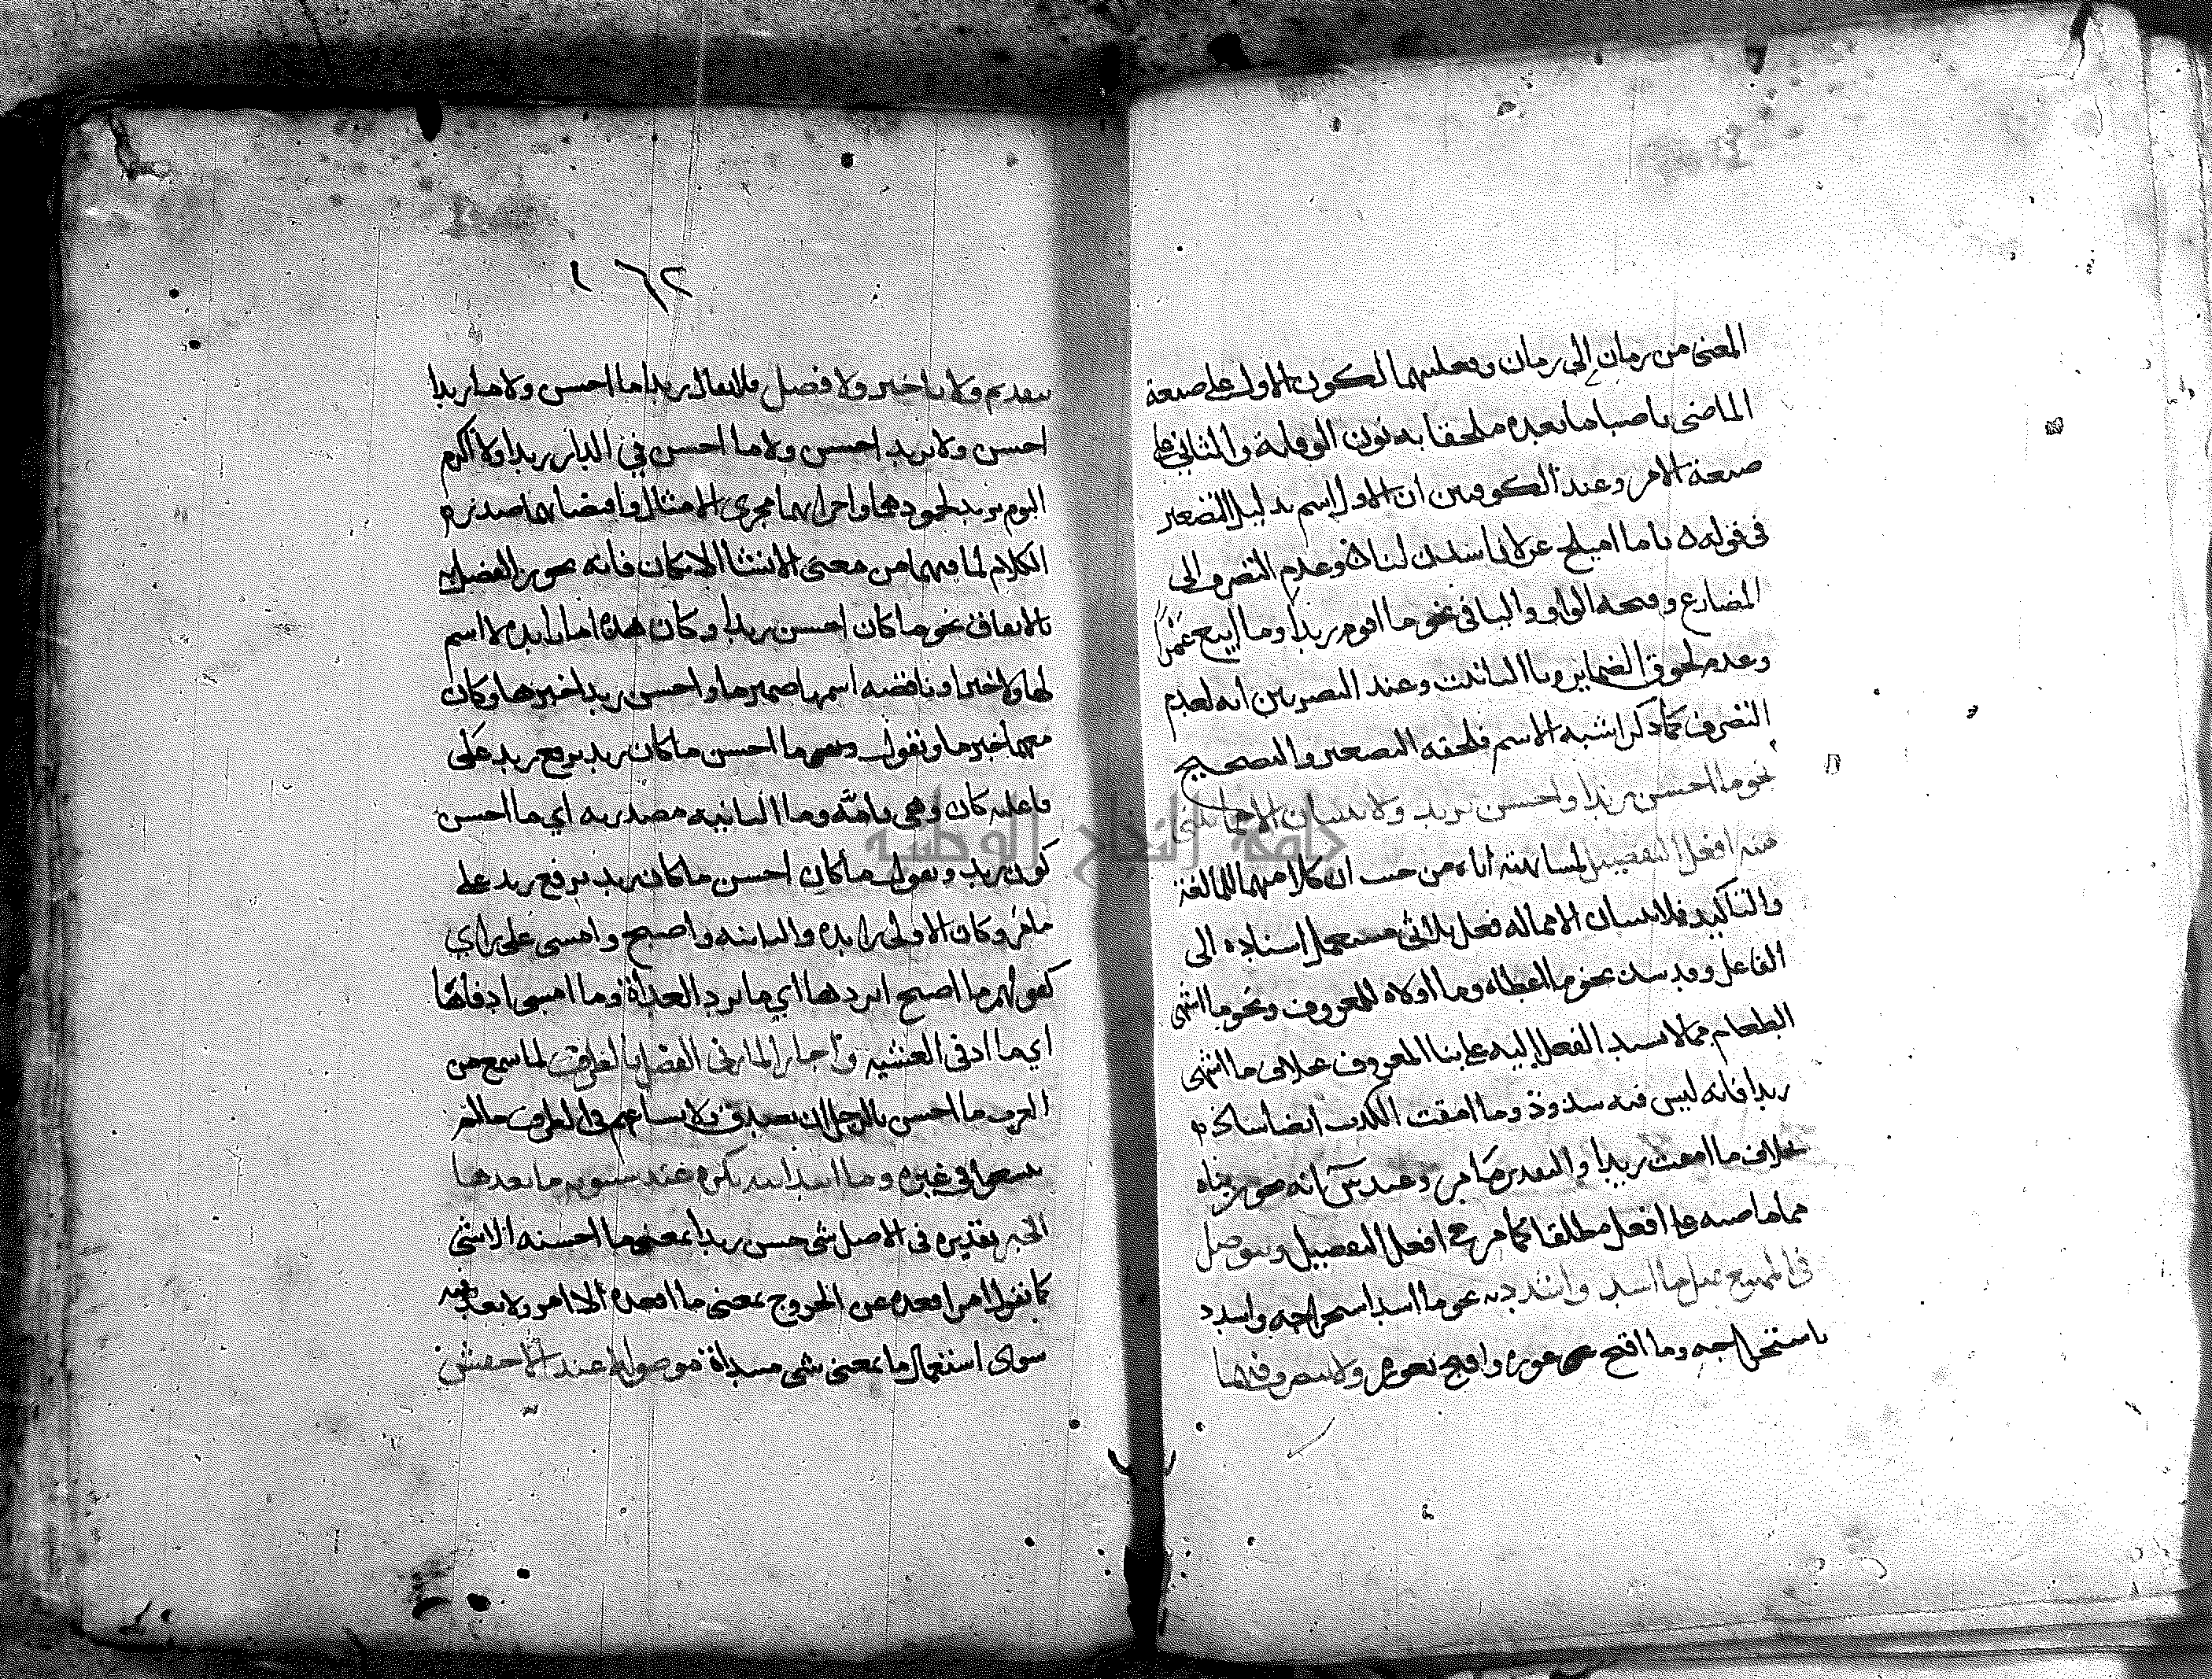 المعنى من زمان إلى زمان وفعليتهما لكون الاول على صيغة
الماضي ناصبا ما بعده ملحقا به نون الوقاية والثاني على
صيغة الامر وعند الكوفيين ان الاول اسم بدليل التصغير
في قوله يا ما اميلح غزلانا شدن لنا وعدم التصرف الى
المضارع وصحة الواو واليا في نحو ما اقوم زيدا وما ابيع عمرا
وعدم لحوق الضماير وتا التانيث وعند البصريين انه لعدم
التصرف كما ذكر اشبه الاسم فلحقه التصغير والتصحيح
نحو ما احسن زيدا واحسن بزيد ولا يبنيان الا مما يبنى
منه افعل التفضيل لمشابهته اياه من حيث ان كلا منهما للمبالغة
والتاكيد فلا يبنيان الا مما له فعل ثلاثي مستعمل اسناده الى
الفاعل وقد شذ نحو ما اعطاه وما اولاه للمعروف ونحو ما اشهى
الطعام مما لا يسند الفعل اليه على بنا المعروف بخلاف ما اشهى
زيدا فانه ليس فيه شذوذ وما امقت الكذب ايضا شاذ
بخلاف ما امقت زيدا والتقدير كما مر وعند س انه يجوز بناه
مما ماضيه على افعل مطلقا كما مر في افعل التفضيل ويتوصل
في الممتنع بمثل ما اشد واشدد به نحو ما اشد استخراجه واشدد
باستخراجه وما اقبح عوره واقبح بعوره ولا يتصرف فيهما
١٦٢
بتقديم ولا تاخير ولا فصل فلا يقال زيدا ما احسن ولا ما زيدا
احسن ولا بزيد احسن ولا ما احسن في الدار زيدا ولا اكرم
اليوم بزيد لجمودهما واجرايهما مجرى الامثال واقتضايهما صدر
الكلام لما فيهما من معنى الانشا الا بكان فانه يجوز الفصل
بالاتفاق نحو ما كان احسن زيدا وكان هذه اما زايده لا اسم
لها ولا خبر او ناقصه اسمها ضمير ما واحسن زيدا خبرها وكان
معهما خبر ما وتقول ما احسن ما كان زيد برفع زيد على
فاعليه كان وهي تامة وما الثانيه مصدريه اي ما احسن
كون زيد وتقول ما كان احسن ما كان زيد برفع زيد على
ما مر وكان الاولى زايده والثانيه واصبح وامسى على راي
كقولهم ما اصبح ابردها اي ما ابرد الغداة وما امسى ادفاها
اي ما ادفى العشيه واجاز المازني الفصل بالظرف لما سمع من
العرب ما احسن بالرجل ان يصدق ولا يساعهم في الظرف ما لم
يسمع في غيره وما ابتدا نكره عند سيبويه ما بعدها
الخبر تقديره في الاصل شي حسن زيدا بمعنى ما احسنه الا شي
كما تقول امر اقعده عن الخروج بمعنى ما اقعده الا امر ولا بعد فيه
سوى استعمال ما بمعنى شي مبتداة موصولة عند الاخفش